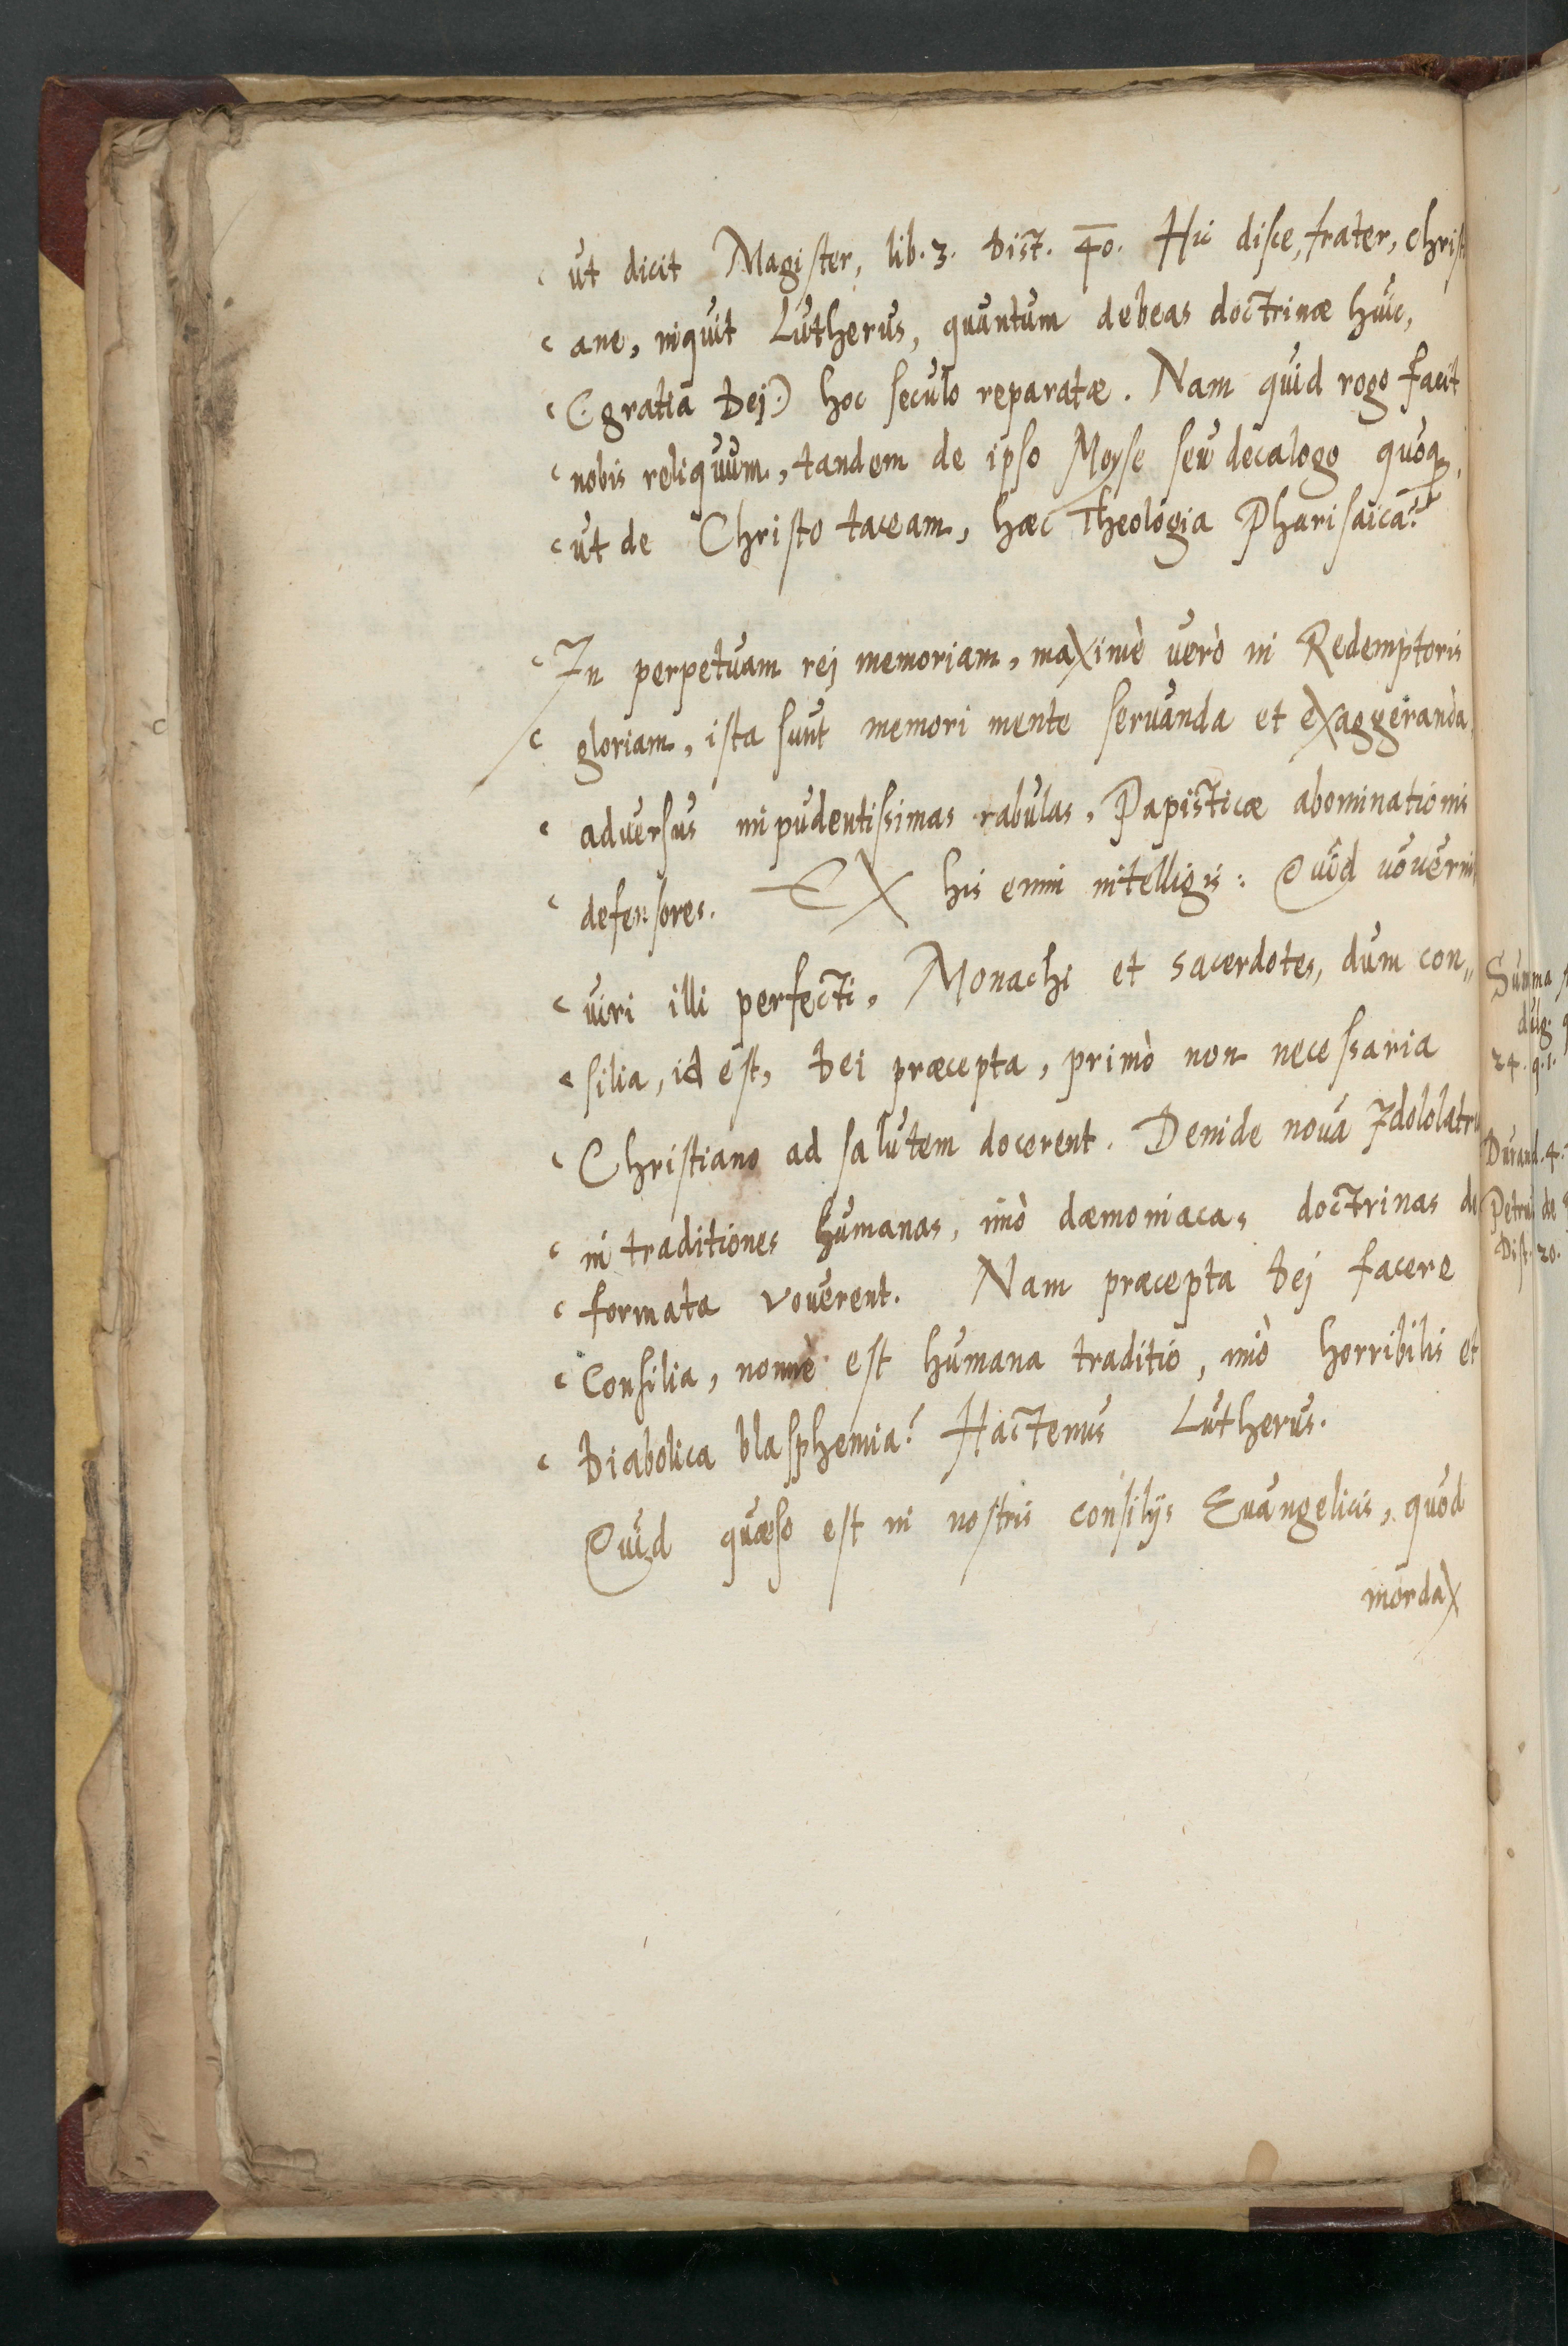 ut dicit Magister, lib. 3. Dist. 40. Hic disce, frater, christ
ane, inquit Lutherus, quantum debeas doctrinæ huic,
(gratia Dej) hoc seculo reparatæ. Nam quid rogo facit
nobis reliquum, tandem de ipso Moyse seu decalogo quoq
ut de Christo taceam, hæc Theologia Pharisaica?
In perpetuam rej memoriam, maximè verò in Redemptoris
gloriam, ista sunt memori mente servanda et exaggeranda
adversus impudentissimas rabulas, Papisticæ abominationis
defensores. EX his enim intelligis: Quid voverin
viri illi perfecti, Monachi et sacerdotes, dum con„
silia, id est, Dei præcepta, primò non necessaria
Christiano ad salutem docerent. Deinde nova Idololatri
in traditiones humanas, imò dæmoniacas doctrinas de
formata voverent. Nam præcepta Dej facere
Consilia, nonnè est humana traditio, imò horribilis et
Diabolica blasphemia? Hactenus Lutherus.
Quid quæso est in nostris consilijs Evangelicis, quod
mordax
Summa
24. q. 1.
Durand. 4.
Petru de
Dist. 20.